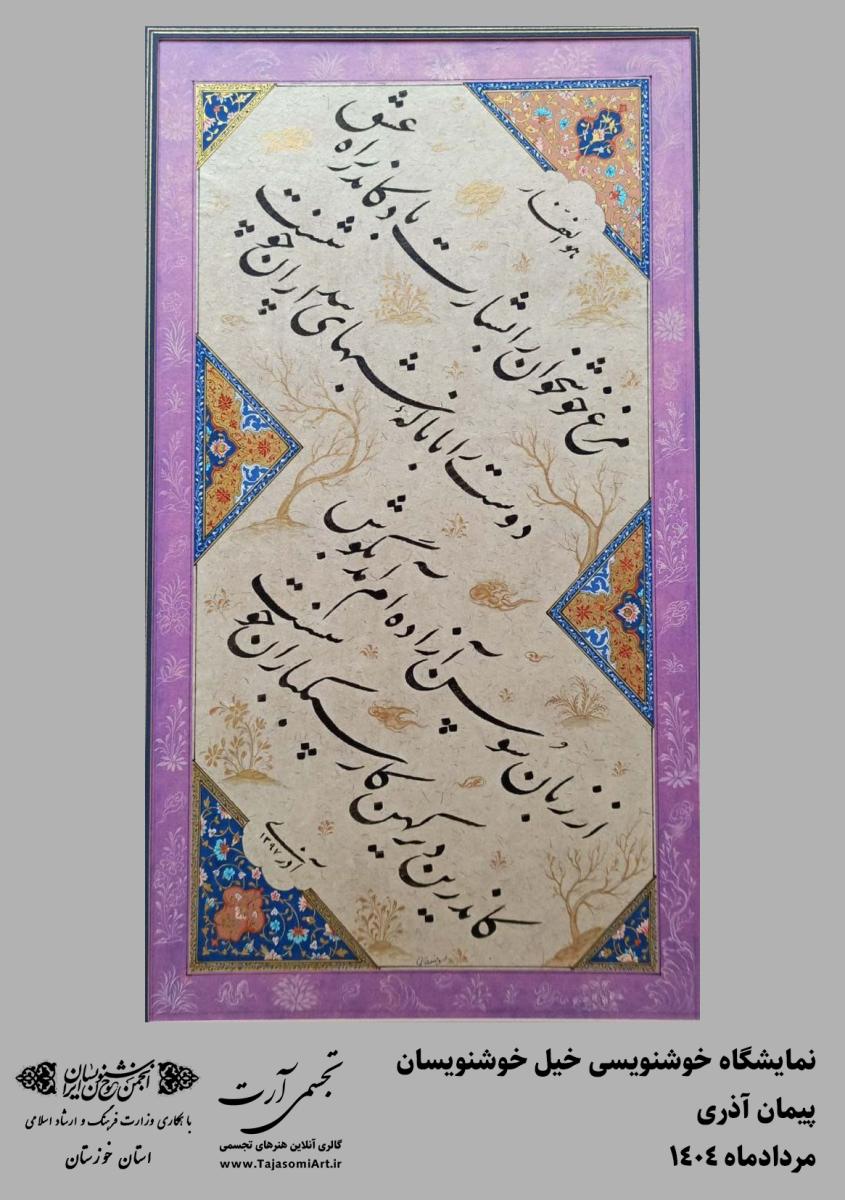 هوالغفار
مرغ خوشخوان را بشارت باد کاندر راه عشق
دوست را با نالهٔ شبهای بیداران خوشست
از زبان سوسن آزاده‌ام آمد بگوش
کاندرین دیر کهن کار سبکباران خوشست
آذری
آذر ۱۳۹۷
نمایشگاه خوشنویسی خیل خوشنویسان
پیمان آذری
مردادماه ۱۴۰۴
تجسمی آرت
گالری آنلاین هنرهای تجسمی
www.TajasomiArt.ir
انجمن خوشنویسان ایران
با همکاری وزارت فرهنگ و ارشاد اسلامی
استان خوزستان